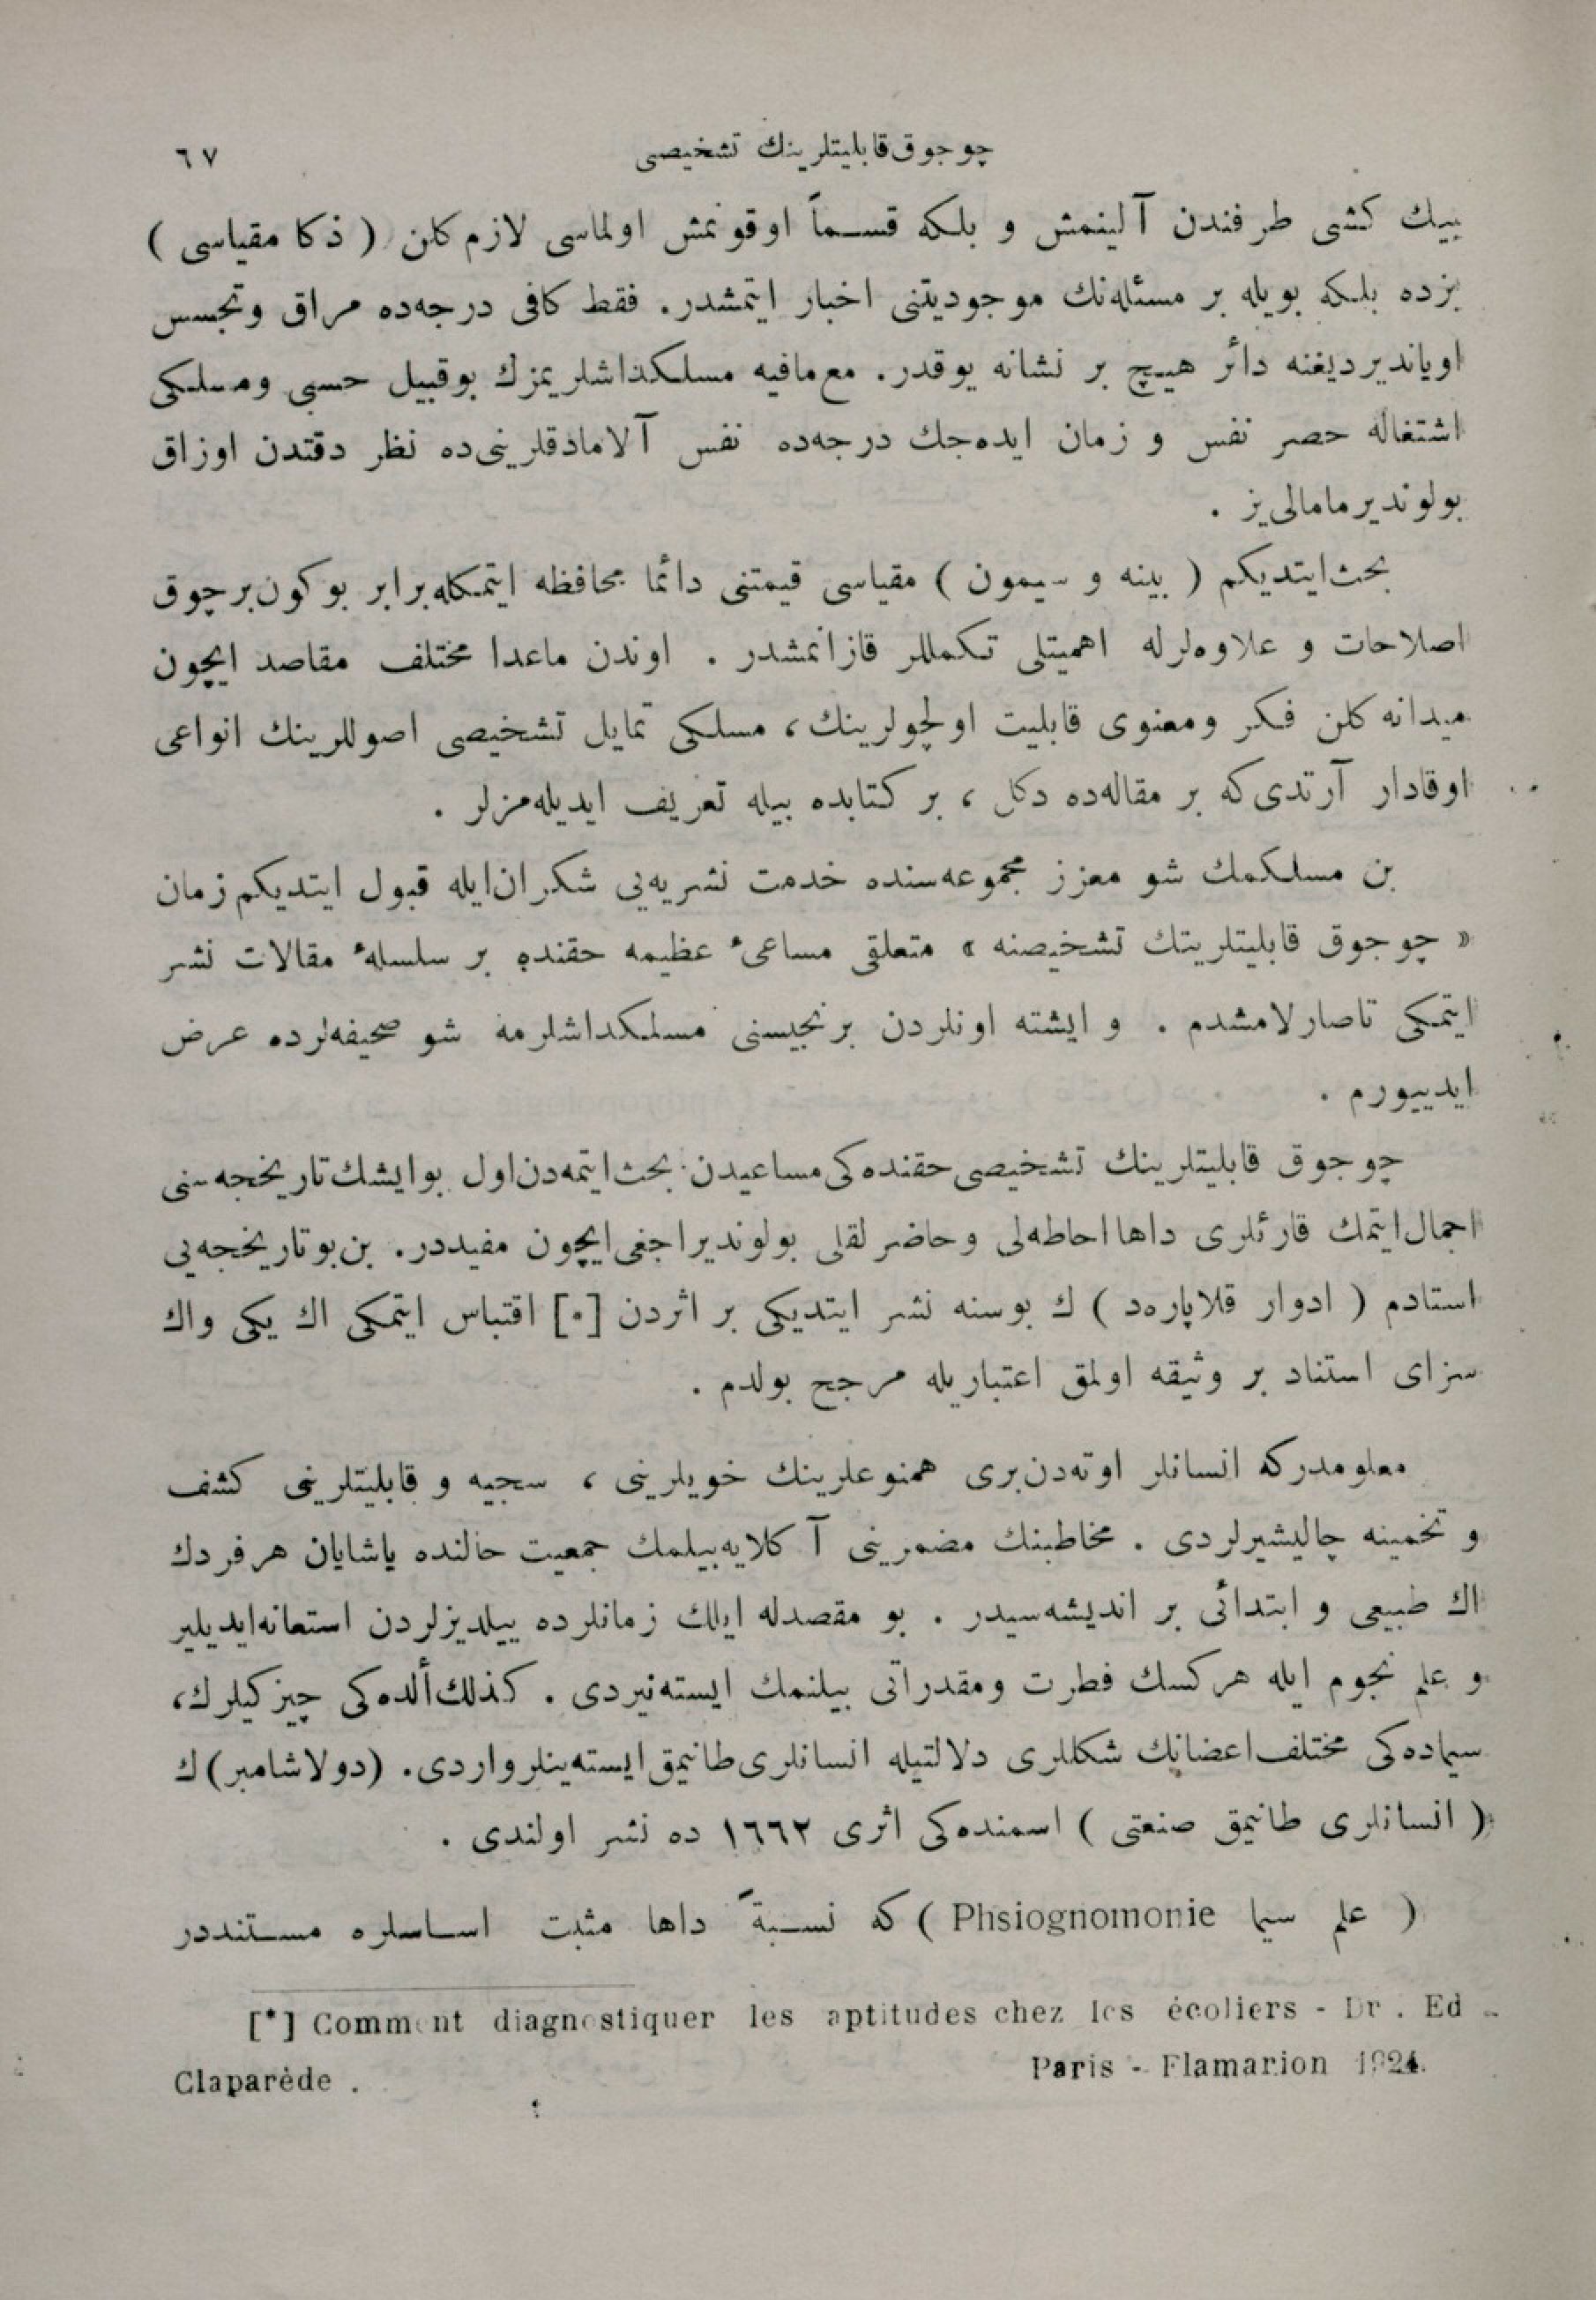 چوجوق قابلیتلرینك تشخیصی ٦٧
بیك كشی طرفندن آلینمش و بلكه قسماً اوقونمش اولماسی لازم كلن ( ذكا مقیاسی )
بزده بلكه بویله بر مسئله‌نك موجودیتنی اخبار ایتمشدر. فقط كافی درجه‌ده مراق وتجسس
اویاندیردیغنه دائر هیچ بر نشانه یوقدر. مع‌مافیه مسلكداشلریمزك بوقبیل حسبی ومسلكی
اشتغاله حصر نفس و زمان ایده‌جك درجه‌ده نفس آلامادقلرینی‌ده نظر دقتدن اوزاق
بولوندیرمامالی‌یز .
بحث‌ایتدیكم ( بینه و سیمون ) مقیاسی قیمتنی دائما محافظه ایتمكله‌برابر بوكون‌برچوق
اصلاحات و علاوه‌لرله اهمیتلی تكمللر قازانمشدر . اوندن ماعدا مختلف مقاصد ایچون
میدانه كلن فكر ومعنوی قابلیت اولچولرینك، مسلكی تمایل تشخیصی اصوللرینك انواعی
اوقادار آرتدی‌كه بر مقاله‌ده دكل ، بر كتابده بیله تعریف ایدیله‌مزلر .
بن مسلكمك شو معزز مجموعه‌سنده خدمت نشریه‌یی شكران‌ایله قبول ایتدیكم زمان
« چوجوق قابلیتلریتك تشخیصنه » متعلق مساعیٔ عظیمه حقنده بر سلسلهٔ مقالات نشر
ایتمكی تاصارلامشدم . و ایشته اونلردن برنجیسنی مسلكداشلرمه شو صحیفه‌لرده عرض
ایدییورم .
چوجوق قابلیتلرینك تشخیصی حقنده‌كی مساعیدن بحث‌ایتمه‌دن‌اول بوایشك تاریخجه‌سنی
اجمال ایتمك قارئلری داها احاطه‌لی وحاضرلقلی بولوندیراجغی ایچون مفیددر. بن‌بوتاریخجه‌یی
استادم ( ادوار قلاپاره‌د ) ك بوسنه نشر ایتدیكی بر اثردن [*] اقتباس ایتمكی اك یكی واك
سزای استناد بر وثیقه اولمق اعتباریله مرجح بولدم .
معلومدركه انسانلر اوته‌دن‌بری همنوعلرینك خویلرینی ، سجیه و قابلیتلرینی كشف
و تخمینه چالیشیرلردی . مخاطبنك مضمرینی آكلایه‌بیلمك جمعیت حالنده یاشایان هرفردك
اك طبیعی و ابتدائی بر اندیشه‌سیدر . بو مقصدله ایلك زمانلرده ییلدیزلردن استعانه‌ایدیلیر
و علم نجوم ایله هركسك فطرت ومقدراتی بیلنمك ایسته‌نیردی . كذلك ألده‌كی چیزكیلرك،
سیماده‌كی مختلف اعضانك شكللری دلالتیله انسانلری طانیمق ایسته‌ینلر واردی. (دولاشامبر) ك
( انسانلری طانیمق صنعتی ) اسمنده‌كی اثری ١٦٦٢ ده نشر اولندی .
( علم سیما Phsiognomonie ) كه نسبةً داها مثبت اساسلره مستنددر
[*] Comment diagnostiquer les aptitudes chez les écoliers - Dr . Ed
Claparède . Paris - Flamarion 1924.